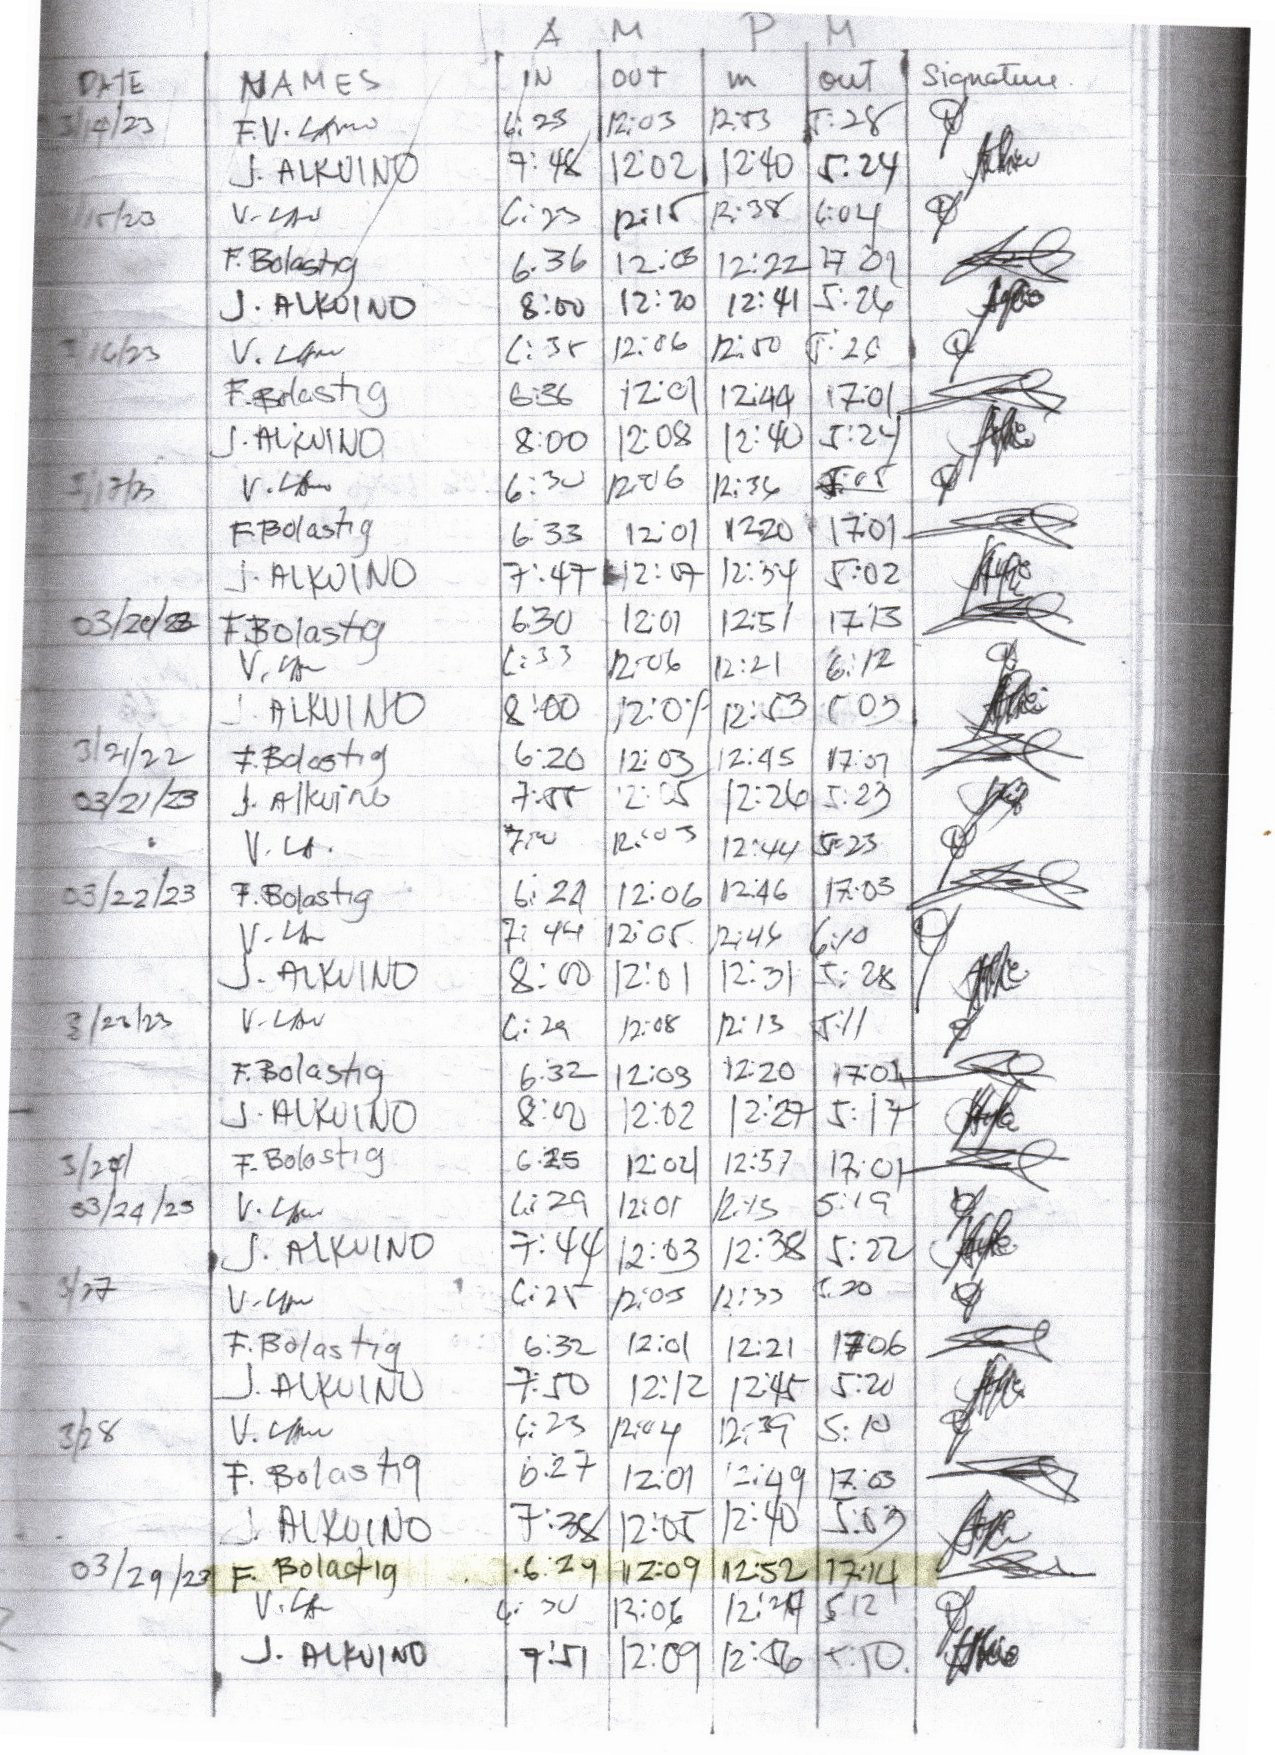 A M P M
DATE NAMES IN OUT in out Signature
3/14/23 F.V. 6:25 12:03 12:53 5:28
J. ALKUINO 7:48 12:02 12:40 5:24
3/15/23 V. 6:23 12:15 12:38 6:04
F. Bolastig 6:36 12:03 12:22 17:01
J. ALKUINO 8:00 12:20 12:41 5:26
3/16/23 V. 6:35 12:06 12:50 5:26
F. Bolastig 6:36 12:01 12:44 17:01
J. ALKUINO 8:00 12:08 12:40 5:24
3/17/23 V. 6:30 12:06 12:36 5:05
F. Bolastig 6:33 12:01 12:20 17:01
J. ALKUINO 7:47 12:07 12:34 5:02
03/20/23 F. Bolastig 6:30 12:01 12:51 17:13
V. 6:33 12:06 12:21 6:12
J. ALKUINO 8:00 12:53 5:03
3/21/22 F. Bolastig 6:20 12:03 12:45 17:01
03/21/23 J. Alkuino 7:55 12:05 12:26 5:23
V. 12:03 12:44 5:23
03/22/23 F. Bolastig 6:21 12:06 12:46 17:03
V. 7:44 12:05 12:46 6:10
J. ALKUINO 8:00 12:01 12:31 5:28
3/23/23 V. 6:29 12:08 12:13 5:11
F. Bolastig 6:32 12:03 12:20 17:01
J. ALKUINO 8:00 12:02 12:27 5:17
3/24/ F. Bolastig 6:25 12:02 12:57 17:01
03/24/23 V. 6:29 12:01 12:15 5:19
J. ALKUINO 7:44 12:03 12:38 5:22
3/27 V. 6:25 12:05 12:33 5:20
F. Bolastig 6:32 12:01 12:21 17:06
J. ALKUINO 7:50 12:12 12:45 5:20
3/28 V. 6:23 12:04 12:39 5:10
F. Bolastig 6:27 12:01 12:49 17:03
J. ALKUINO 7:38 12:05 12:40 5:03
03/29/23 F. Bolastig 6:29 12:09 12:52 17:14
V. 6:30 12:06 12:24 5:12
J. ALKUINO 7:51 12:09 12:56 5:10